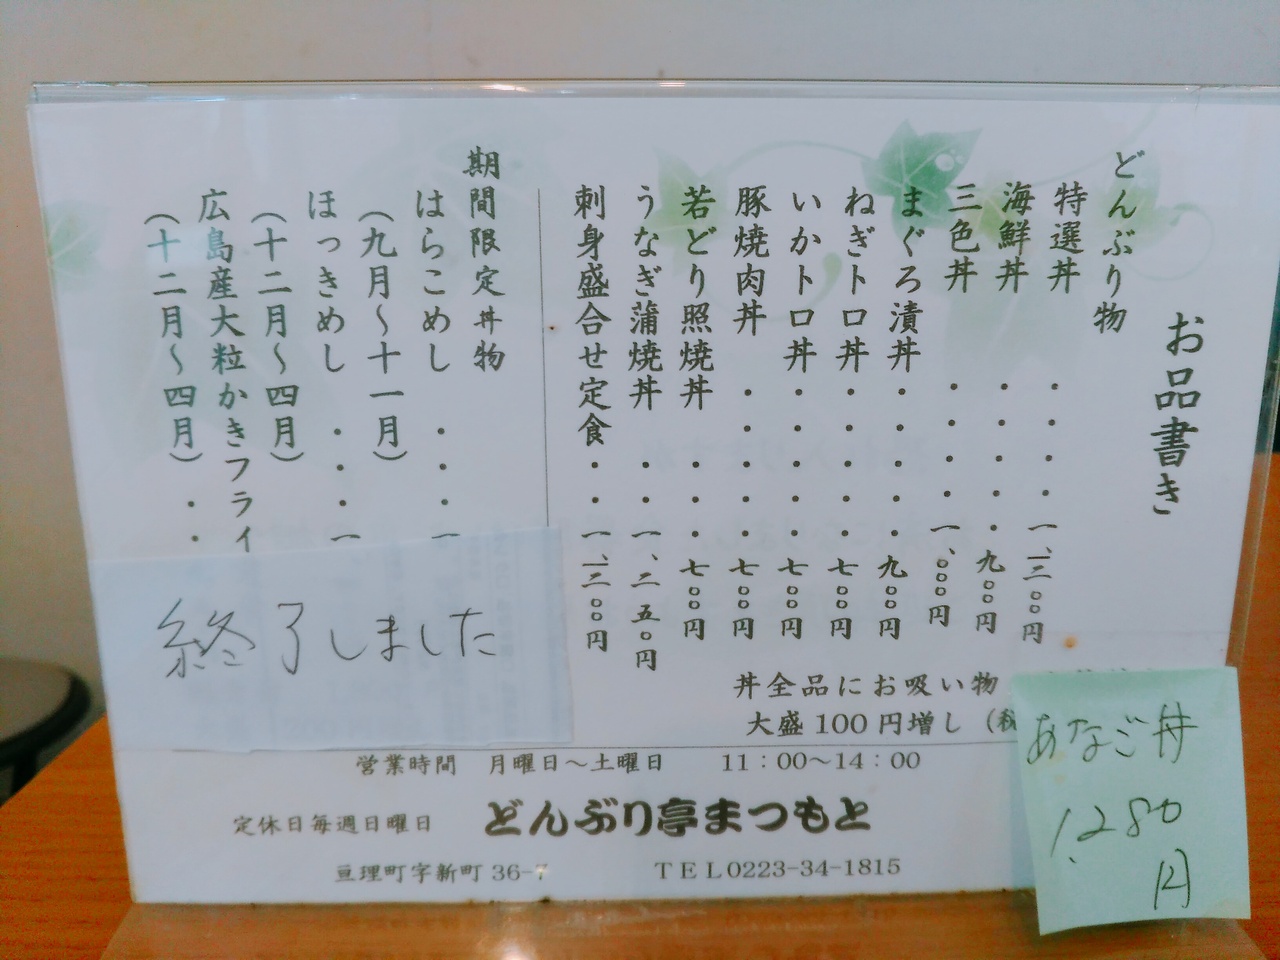 お品書き
どんぶり物
特選丼・・・・一、二〇〇円
海鮮丼・・・・・九〇〇円
三色丼・・・・一、〇〇〇円
まぐろ漬丼・・・・・九〇〇円
ねぎトロ丼・・・・・七〇〇円
いかトロ丼・・・・・七〇〇円
豚焼肉丼・・・・・七〇〇円
若どり照焼丼・・・七〇〇円
うなぎ蒲焼丼・・一、二五〇円
刺身盛合せ定食・・一、二〇〇円
期間限定丼物
はらこめし・・・一
(九月～十一月)
ほっきめし・・・一
(十二月～四月)
広島産大粒かきフライ
(十二月～四月)・・
終了しました
丼全品にお吸い物
大盛100円増し(税
あなご丼
1,280
円
営業時間 月曜日～土曜日 11：00～14：00
定休日毎週日曜日 どんぶり亭まつもと
亘理町字新町36-7 TEL0223-34-1815